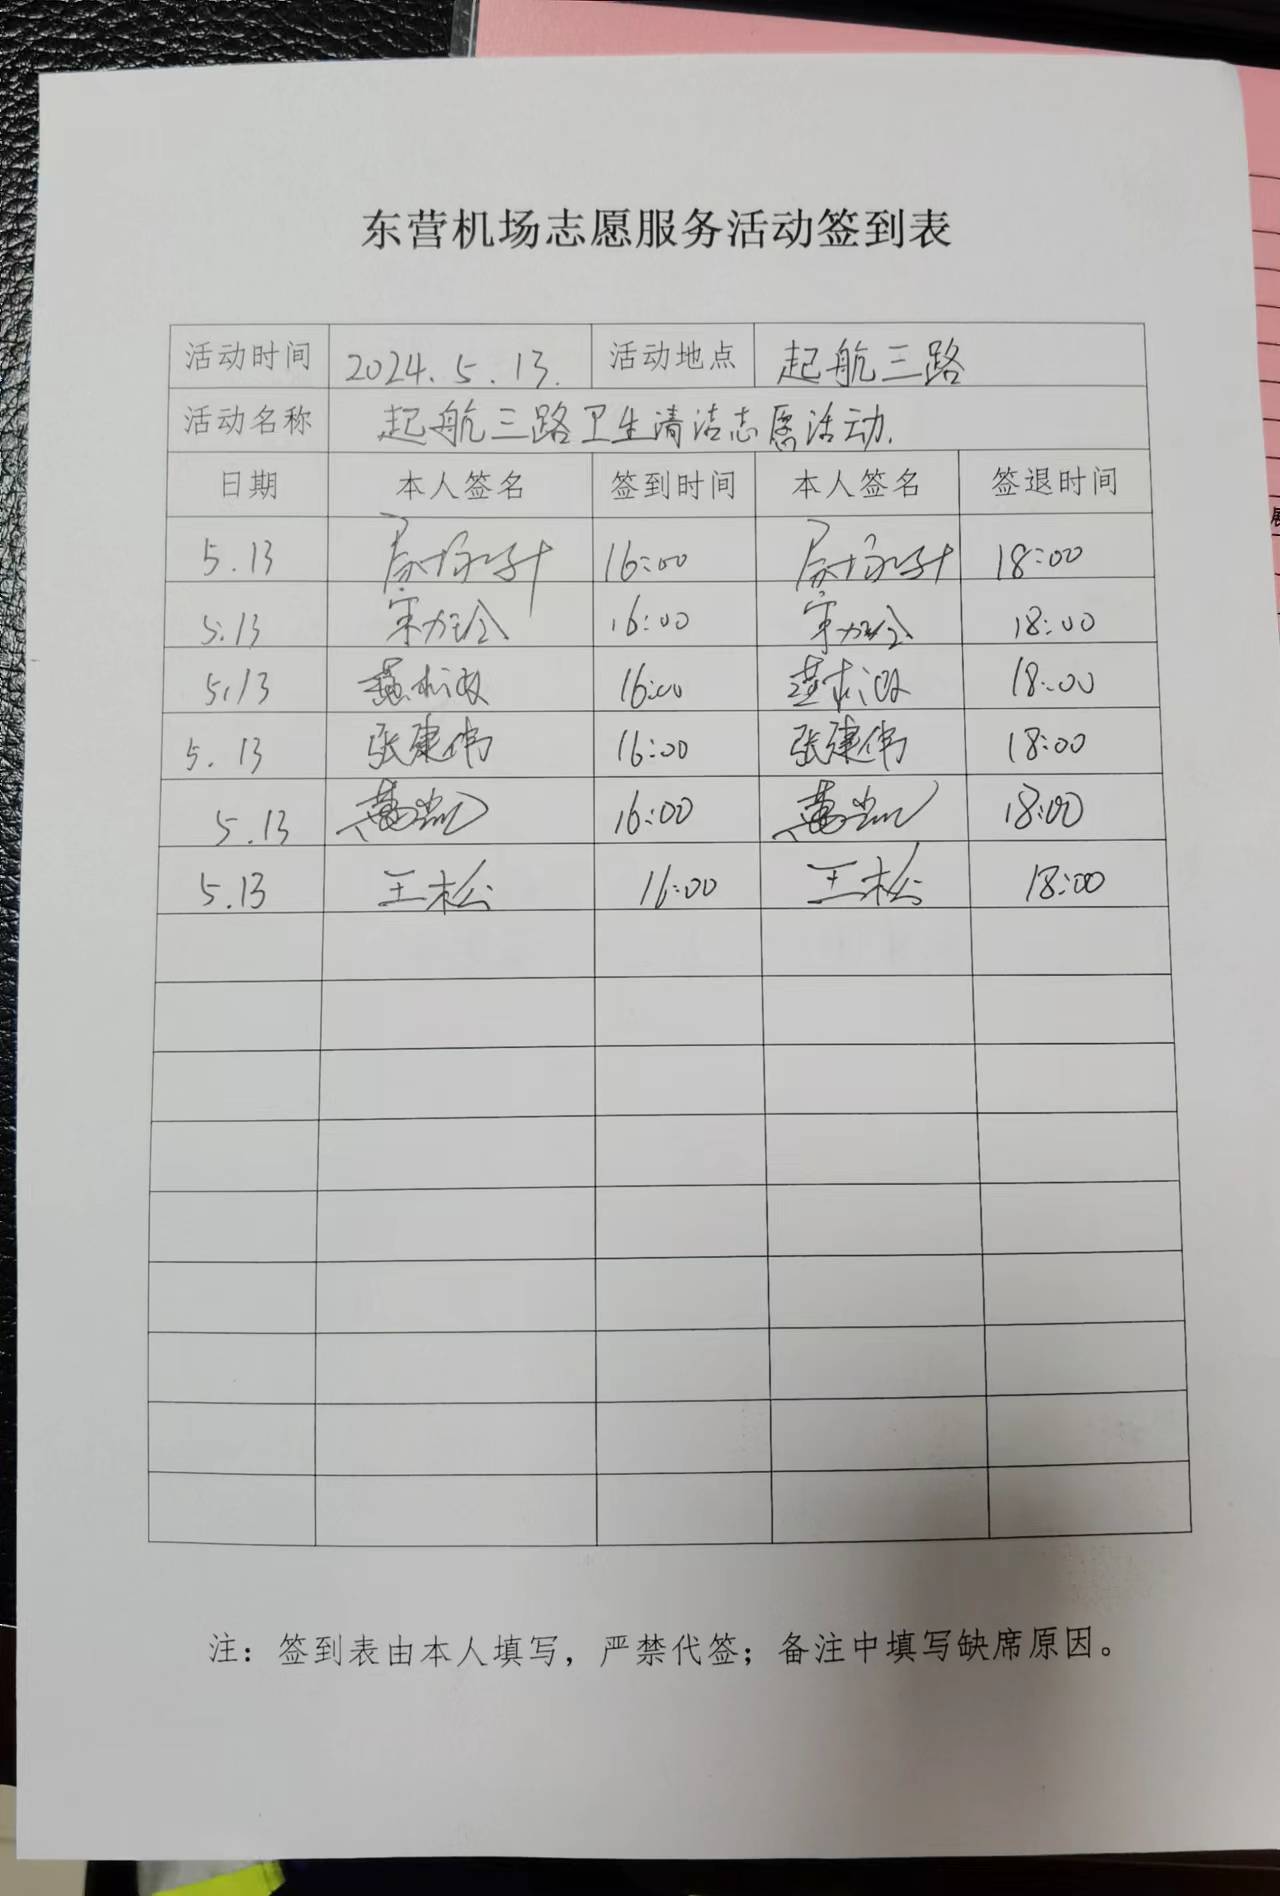 东营机场志愿服务活动签到表
活动时间 2024.5.13. 活动地点 起航三路
活动名称 起航三路卫生清洁志愿活动.
日期 本人签名 签到时间 本人签名 签退时间
5.13 16:00 18:00
5.13 16:00 18:00
5.13 16:00 18:00
5.13 张建伟 16:00 张建伟 18:00
5.13 16:00 18:00
5.13 王松 16:00 王松 18:00
注：签到表由本人填写，严禁代签；备注中填写缺席原因。